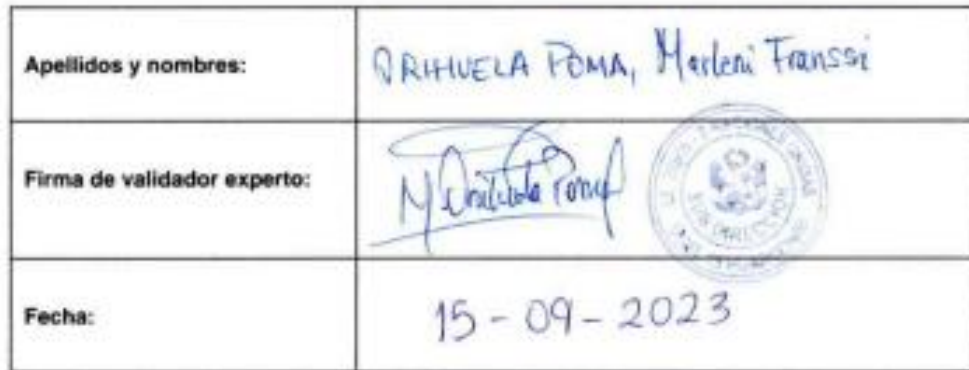 Apellidos y nombres: ORIHUELA POMA, Marleni Franssi
Firma de validador experto: M Orihuela Poma
SUB DIRECCIÓN
Fecha: 15 - 09 - 2023